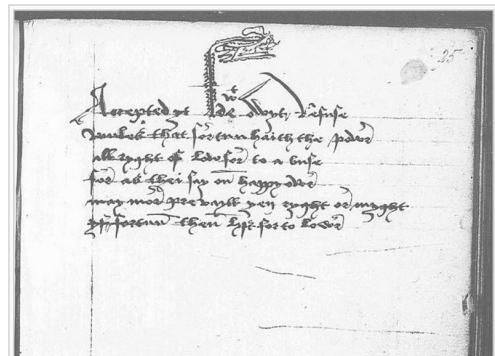 25
Accepted yt refuse
vnles that fortun haith the power
all ryght of love for to abuse
for as thei say on happy ower
may mor prevayll yen ryght or myght
yf fortun then lyst for to lower